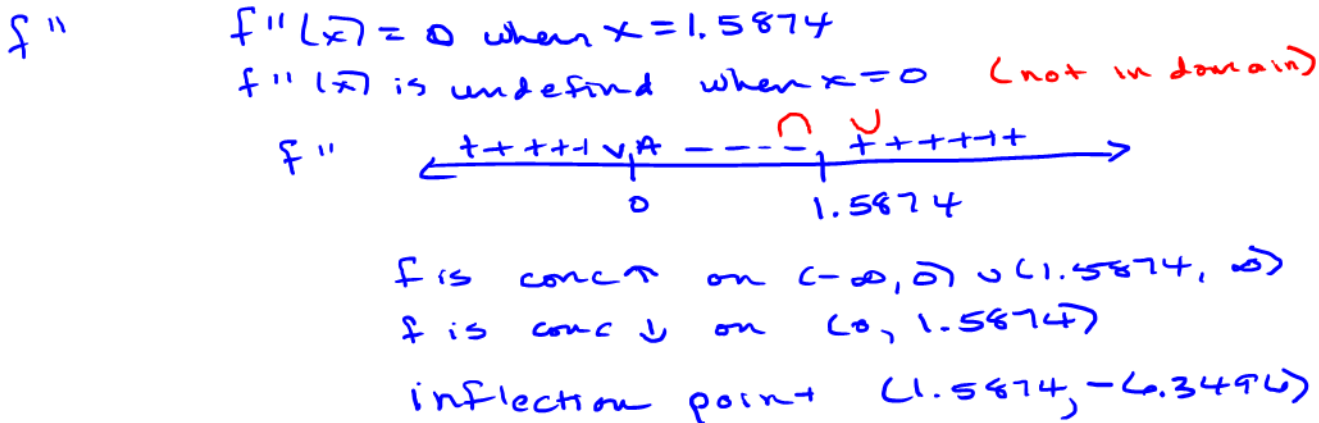 f" f"(x) = 0 when x = 1.5874
f"(x) is undefind when x = 0 (not in domain)
∩ ∪
f" +++++ VA ---- +++++++
0 1.5874
f is conc ↑ on (-∞, 0) ∪ (1.5874, ∞)
f is conc ↓ on (0, 1.5874)
inflection point (1.5874, -6.3496)